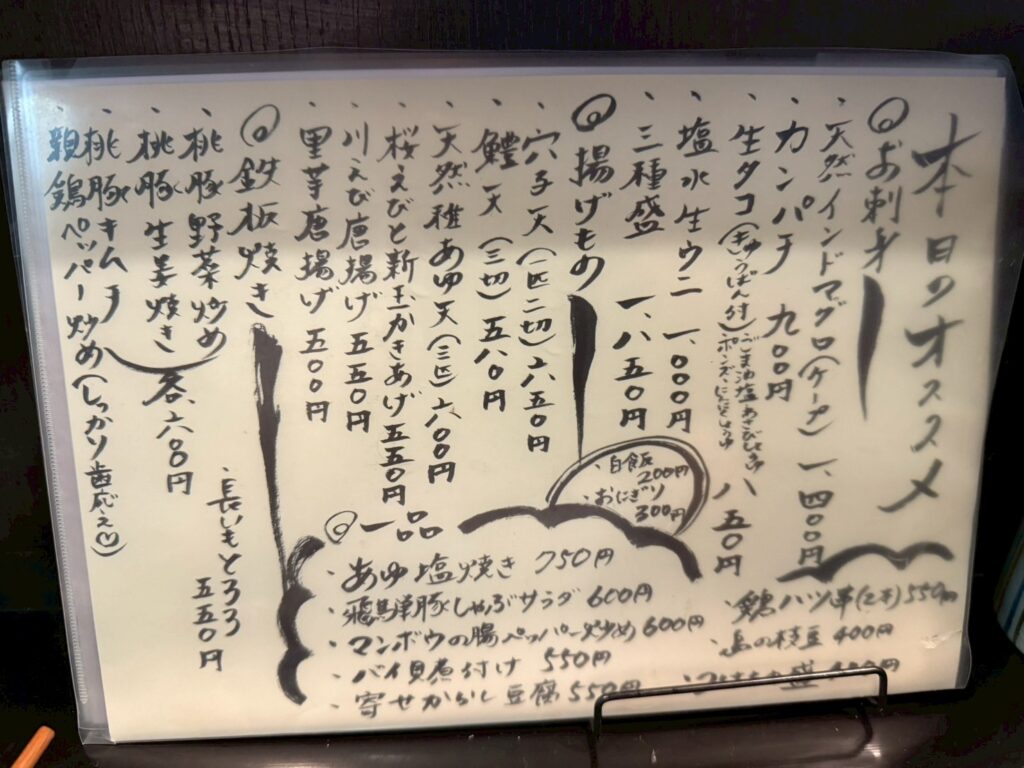 本日のオススメ
◎お刺身
、天然インドマグロ(ケープ) 一、四〇〇円
、カンパチ 九〇〇円
、生タコ(きゅうばん付) 八五〇円
、塩水生ウニ 一、〇〇〇円
、三種盛 一、八五〇円
◎揚げもの
、穴子天(一匹二切)六五〇円
、鱧天(三切)五八〇円
、天然稚あゆ天(三匹)六〇〇円
、桜えびと新玉かきあげ 五五〇円
、川えび唐揚げ 五五〇円
、里芋唐揚げ 五〇〇円
◎鉄板焼き
、桃豚野菜炒め
、桃豚生姜焼き
、桃豚キムチ
各、六八〇円
、親鶏ペッパー炒め(しっかり歯応え♡)
、長いもとろろ 五五〇円
・白飯 200円
・おにぎり 300円
◎一品
・あゆ塩焼き 750円
・飛騨豚しゃぶサラダ 600円
・マンボウの腸ペッパー炒め 600円
・バイ貝煮付け 550円
・寄せからし豆腐 550円
・鶏ハツ串(2本) 550円
・島の枝豆 400円